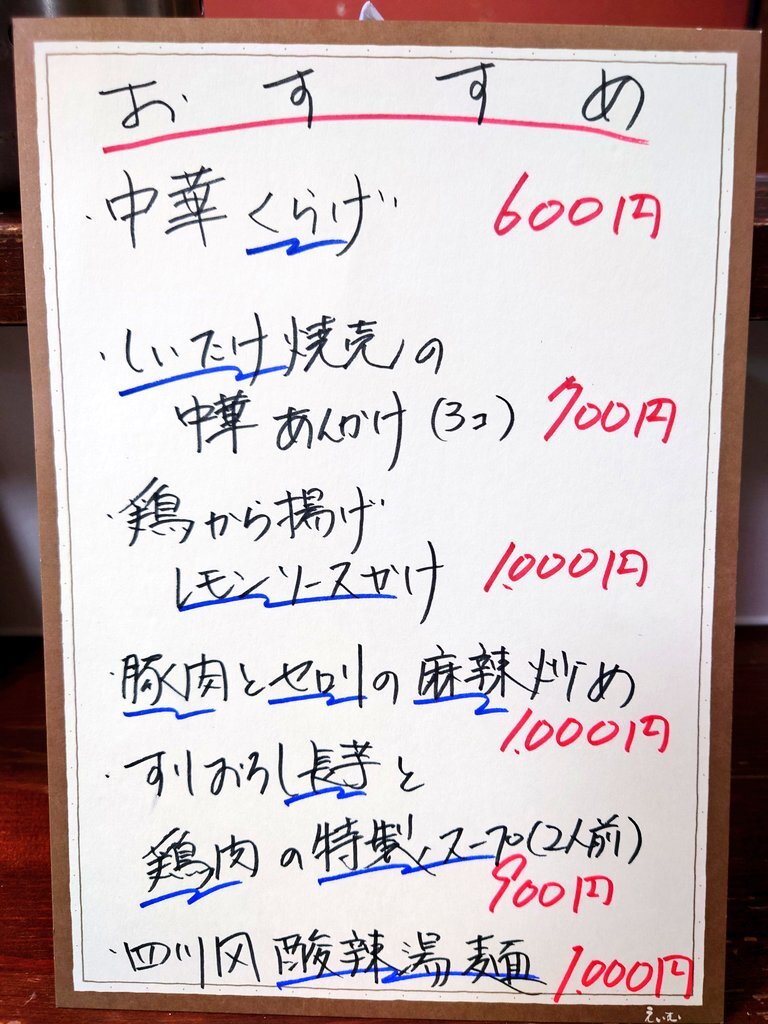 おすすめ
・中華くらげ 600円
・しいたけ焼売の
中華あんかけ(3コ) 700円
・鶏から揚げ
レモンソースがけ 1,000円
・豚肉とセロリの麻辣炒め
1,000円
・すりおろし長芋と
鶏肉の特製スープ(2人前)
900円
・四川風酸辣湯麺 1,000円
えいむ